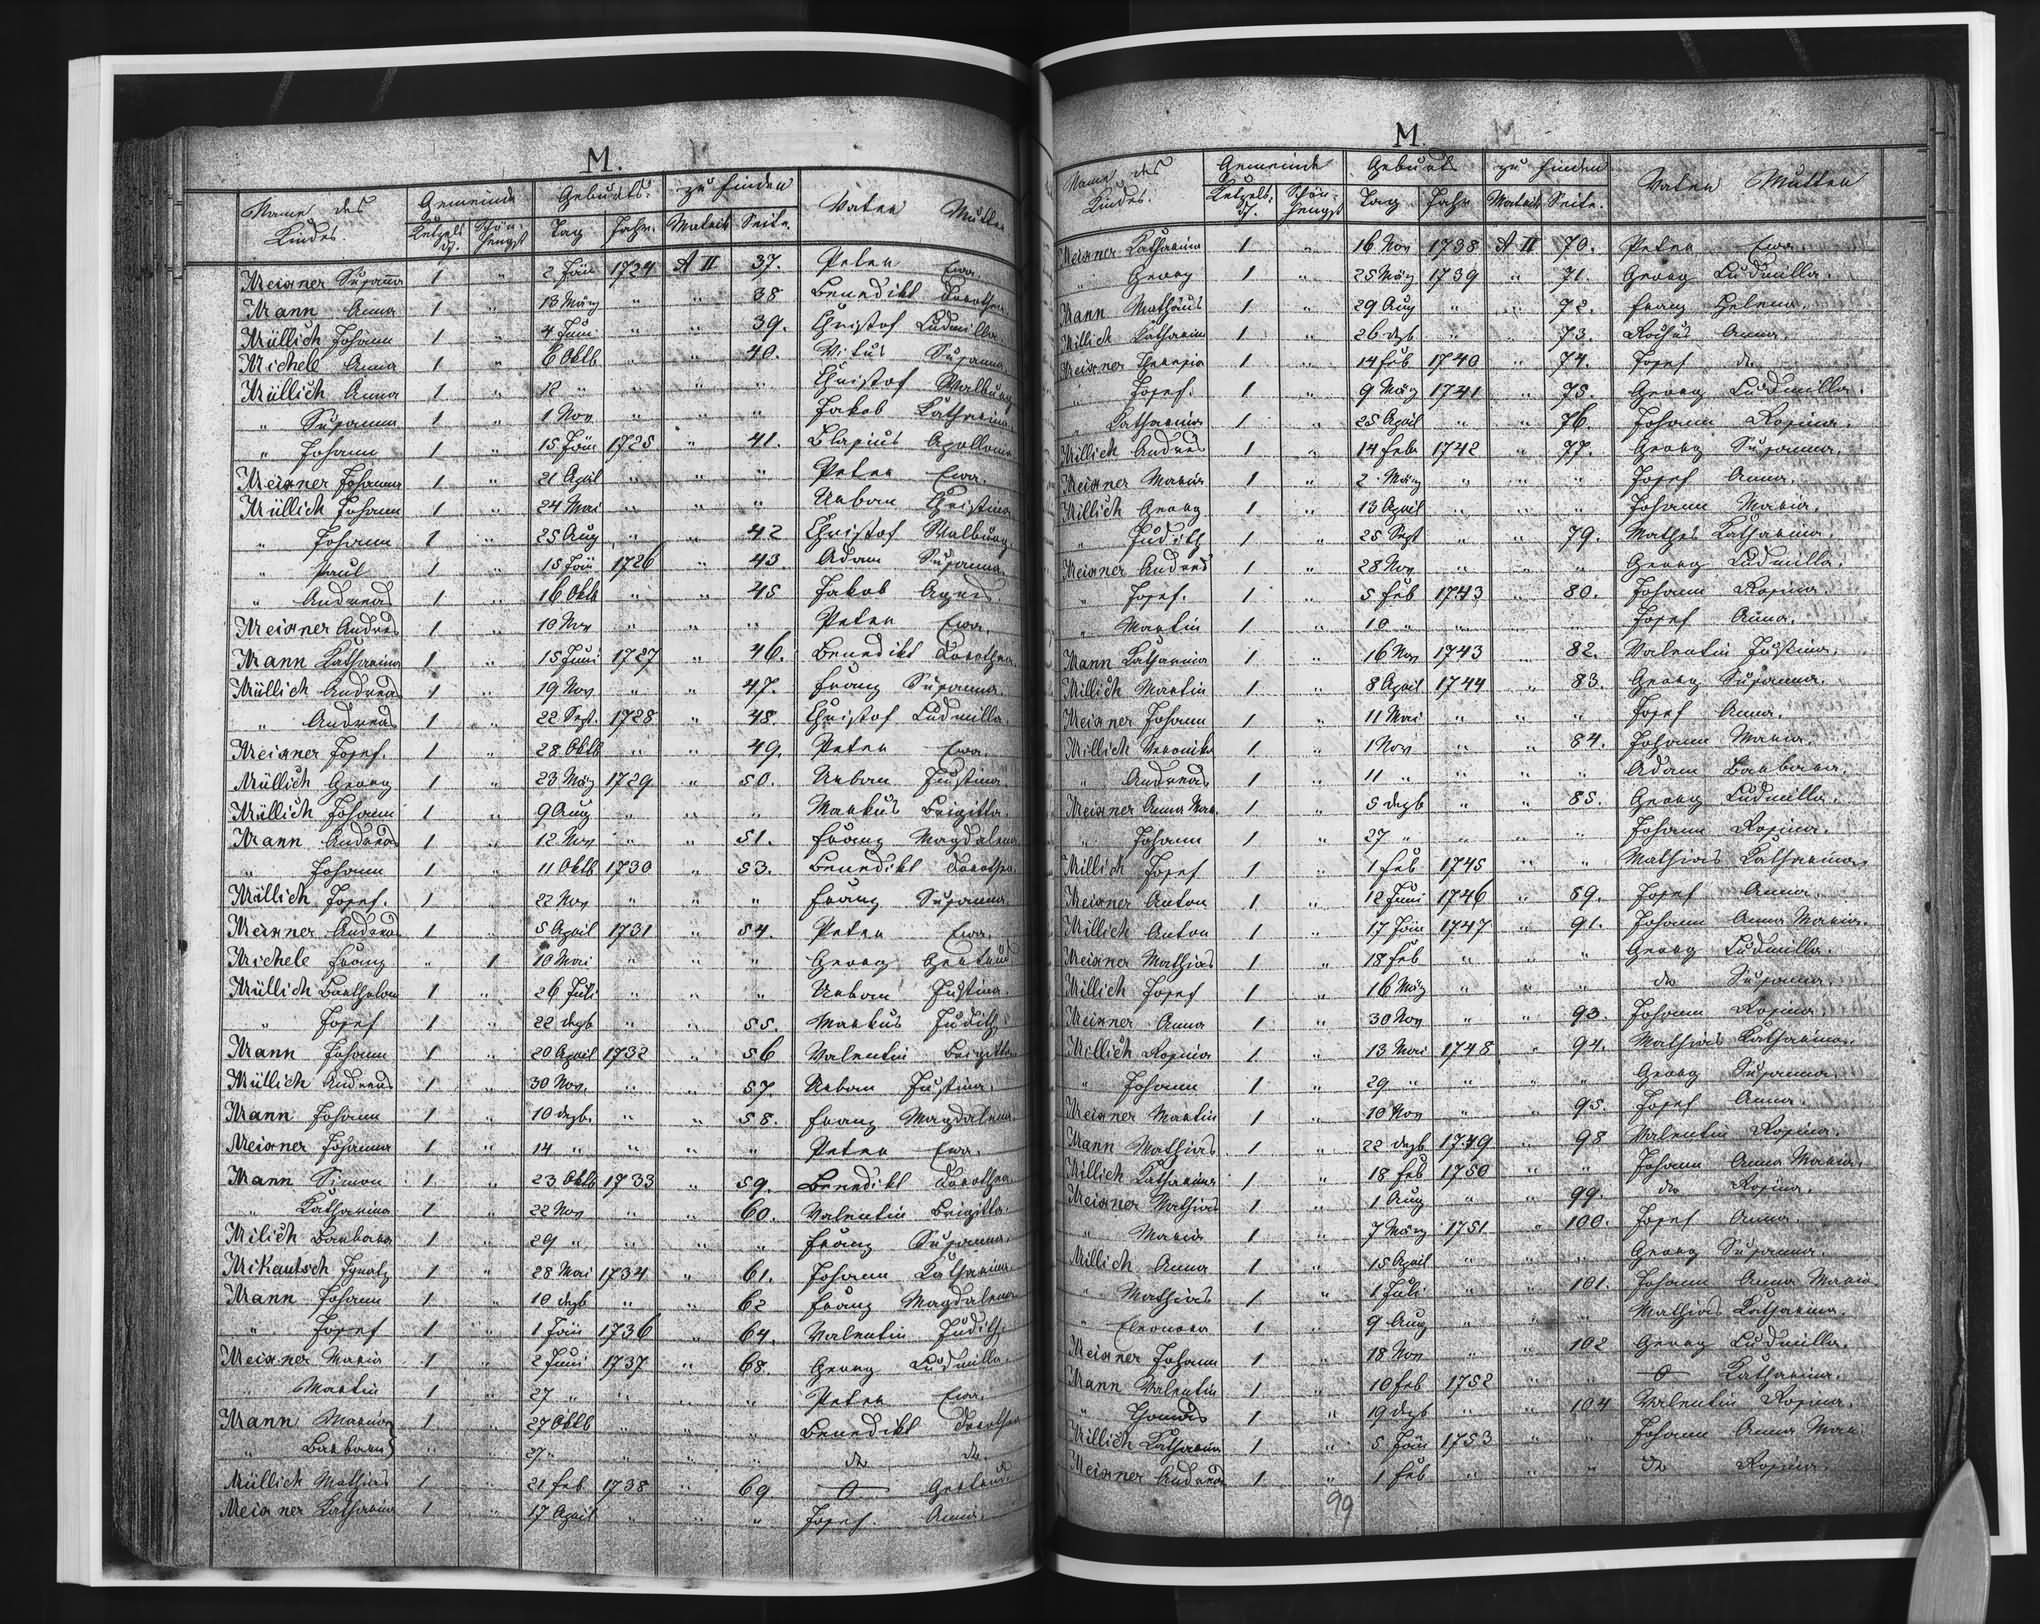 M.
Name des Kindes. Gemeinde Geburts- zu finden Vater Mutter
Ketzels-df. Schön-hengst Tag Jahr. Matrik Seite.
Meixner Susanna 1 " 2 Jän 1724 A II 37. Peter Eva.
Mann Anna 1 " 13 März " " 38 Benedikt Dorothea.
Müllich Johann 1 " 4 Juni " " 39. Christof Ludmilla.
Michele Anna 1 " 6 Oktb " " 40. Vitus Susanna.
Müllich Anna 1 " 12 " " " " Christof Walburg
" Susanna 1 " 1 Nov " " " Jakob Katharina
" Johann 1 " 15 Jän 1725 " 41. Blasius Apollonia
Meixner Johanna 1 " 21 April " " " Peter Eva.
Müllich Johann 1 " 24 Mai " " " Urban Christina
" Johann 1 " 25 Aug " " 42 Christof Walburg.
" Paul 1 " 15 Jän 1726 " 43. Adam Susanna.
" Andreas 1 " 16 Oktb " " 45 Jakob Agnes
Meixner Andreas 1 " 10 Nov " " " Peter Eva.
Mann Katharina 1 " 15 Juni 1727 " 46. Benedikt Dorothea
Müllich Andreas 1 " 19 Nov " " 47. Franz Susanna
" Andreas 1 " 22 Sept. 1728 " 48. Christof Ludmilla.
Meixner Josef. 1 " 28 Oktb " " 49. Peter Eva
Müllich Georg 1 " 23 März 1729 " 50. Urban Justina
Müllich Johann 1 " 9 Aug " " " Markus Brigitta.
Mann Andreas 1 " 12 Nov " " 51. Franz Magdalena
" Johann 1 " 11 Oktb 1730 " 53. Benedikt Dorothea
Müllich Josef. 1 " 22 Nov " " " Franz Susanna.
Meixner Andreas 1 " 5 April 1731 " 54. Peter Eva.
Michele Franz " 1 10 Mai " " " Georg Gertrud
Müllich Bartholom 1 " 26 Juli " " " Urban Justina.
" Josef 1 " 22 Dezb " " 55. Markus Judith
Mann Johann 1 " 20 April 1732 " 56 Valentin Brigitta
Müllich Andreas 1 " 30 Nov. " " 57. Urban Justina.
Mann Johann 1 " 10 Dezb. " " 58. Franz Magdalena
Meixner Johanna 1 " 14 " " " " Peter Eva.
Mann Simon 1 " 23 Oktb 1733 " 59. Benedikt Dorothea
" Katharina 1 " 22 Nov " " 60. Valentin Brigitta.
Milich Barbara 1 " 29 " " " " Franz Susanna.
Mikautsch Ignatz 1 " 28 Mai 1734 " 61. Johann Katharina
Mann Johann 1 " 10 Dezb " " 62 Franz Magdalena
" Josef 1 " 1 Jän 1736 " 64. Valentin Judith
Meixner Maria 1 " 2 Juni 1737 " 68. Georg Ludmilla
" Martin 1 " 27 " " " " Peter Eva.
Mann Maria } 1 " 27 Oktb " " " Benedikt Dorothea
" Barbara } " " 27 " " " " do do.
Müllich Mathias 1 " 21 Feb 1738 " 69 —0— Gertrud
Meixner Katharina 1 " 17 April " " " Josef. Anna.
M.
Name des Kindes. Gemeinde Geburts zu finden Vater Mutter
Ketzels-df. Schön-hengst Tag Jahr Matrik Seite.
Meixner Katharina 1 " 16 Nov 1738 A II 70. Peter Eva.
" Georg 1 " 25 März 1739 " 71. Georg Ludmilla.
Mann Mathäus 1 " 29 Aug " " 72. Franz Helena.
Millich Katharina 1 " 26 Dezb " " 73. Rochus Anna.
Meixner Theresia 1 " 14 Feb 1740 " 74. Josef do
" Josef. 1 " 9 März 1741 " 75. Georg Ludmilla.
" Katharina 1 " 25 April " " 76. Johann Rosina.
Millich Andreas 1 " 14 Febr 1742 " 77. Georg Susanna.
Meixner Maria 1 " 2 März " " " Josef Anna.
Millich Georg 1 " 13 April " " " Johann Maria.
" Judith 1 " 25 Sept " " 79. Mathes Katharina.
Meixner Andreas 1 " 28 Nov " " " Georg Ludmilla.
" Josef. 1 " 5 Feb 1743 " 80. Johann Rosina.
" Martin 1 " 10 " " " " Josef Anna.
Mann Katharina 1 " 16 Nov 1743 " 82. Valentin Justina.
Millich Martin 1 " 8 April 1744 " 83. Georg Susanna.
Meixner Johann 1 " 11 Mai " " " Josef Anna.
Millich Veronika 1 " 1 Nov " " 84. Johann Maria.
" Andreas 1 " 11 " " " " Adam Barbara.
Meixner Anna Mar. 1 " 5 Dezb " " 85. Georg Ludmilla.
" Johann 1 " 27 " " " " Johann Rosina.
Millich Josef 1 " 1 Feb 1745 " " Mathias Katharina.
Meixner Anton 1 " 12 Juni 1746 " 89. Josef Anna.
Millich Anton 1 " 17 Jän 1747 " 91. Johann Anna Maria.
Meixner Mathias 1 " 18 Feb " " " Georg Ludmilla.
Millich Josef 1 " 16 März " " " do Susanna.
Meixner Anna 1 " 30 Nov " " 93. Johann Rosina.
Millich Rosina 1 " 13 Mai 1748 " 94. Mathias Katharina.
" Johann 1 " 29 " " " " Georg Susanna.
Meixner Martin 1 " 10 Nov " " 95. Josef Anna.
Mann Mathias 1 " 22 Dezb 1749 " 98 Valentin Rosina.
Millich Katharina 1 " 18 Feb 1750 " " Johann Anna Maria.
Meixner Mathias 1 " 1 Aug " " 99. do Rosina.
" Maria 1 " 7 März 1751 " 100. Josef Anna.
Millich Anna 1 " 15 April " " " Georg Susanna.
" Mathias 1 " 1 Juli " " 101. Johann Anna Maria.
" Eleonora 1 " 9 Aug " " " Mathias Katharina.
Meixner Johann 1 " 18 Nov " " 102 Georg Ludmilla.
Mann Valentin 1 " 10 Feb 1752 " " —0— Katharina.
" Thomas 1 " 19 Dezb " " 104 Valentin Rosina.
Millich Katharina 1 " 5 Jän 1753 " " Johann Anna Mar.
Meixner Andreas 1 " 1 Feb " " " do Rosina.
99